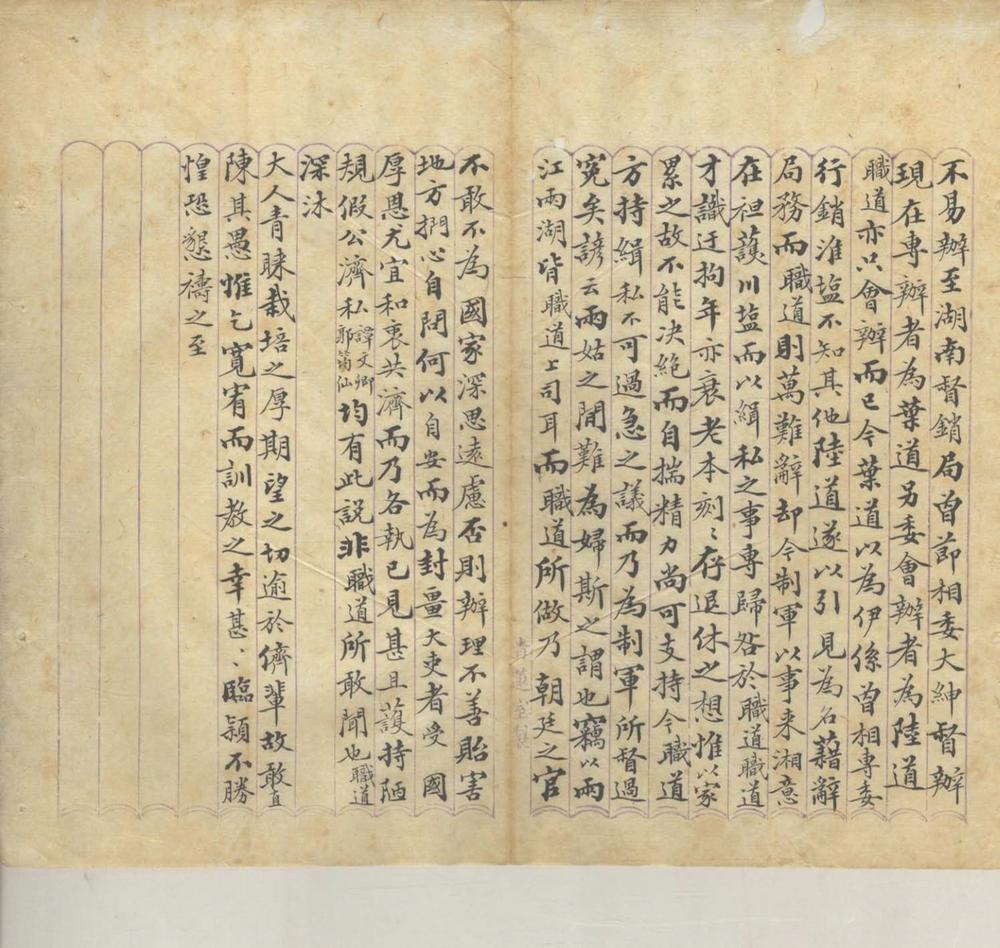 不易辦至湖南督銷局曾節相委大紳督辦
現在專辦者為葉道另委會辦者為陸道
職道亦只會辦而已今葉道以為伊係曾相專委
行銷淮塩不知其他陸道遂以引見為名藉辭
局務而職道則萬難辭却今制軍以事来湘意
在袒護川塩而以緝私之事專歸咎於職道職道
才識迂拘年亦衰老本刻〻存退休之想惟以家
累之故不能决絕而自揣精力尚可支持今職道
方持緝私不可過急之議而乃為制軍所督過
寃矣諺云兩姑之閒難為婦斯之謂也竊以兩
江兩湖皆職道上司耳而職道所做乃 朝廷之官
不敢不為國家深思遠慮否則辦理不善貽害
地方捫心自問何以自安而為封疆大吏者受 國
厚恩尤宜和衷共濟而乃各執己見甚且護持陋
規假公濟私譚文卿郭筠仙均有此說非職道所敢聞也職道
深沐
大人青睞栽培之厚期望之切逾於儕輩故敢直
陳其愚惟乞寬宥而訓教之幸甚〻臨穎不勝
惶恐懇禱之至